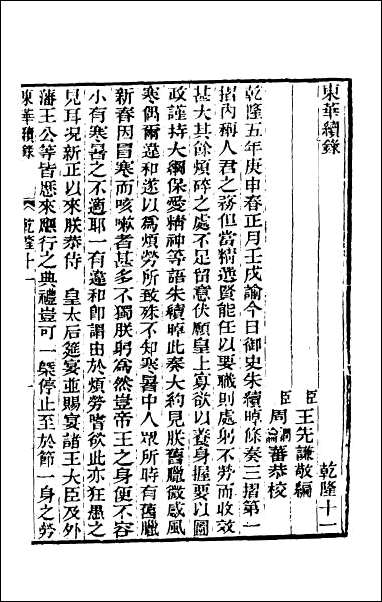 東華續錄 乾隆十一
臣王先謙敬編
臣周潤瀹蕃恭校
乾隆五年庚申春正月壬戌諭今日御史朱續晫條奏三摺第一
摺內稱人君之務但當精選賢能任以要職則處躬不勞而收效
甚大其餘煩碎之處不足留意伏願皇上寡欲以養身握要以圖
政謹持大綱保愛精神等語朱續晫此奏大約見朕舊臘微感風
寒偶爾違和遂以爲煩勞所致殊不知寒暑中人眾所時有舊臘
新春因冒寒而咳嗽者甚多不獨朕躬爲然豈帝王之身便不容
小有寒暑之不適耶一有違和卽謂由於煩勞皆欲此亦狂愚之
見耳況新正以來朕奉侍 皇太后筵宴並賜宴諸王大臣及外
藩王公等皆應來應行之典禮豈可一槩停止至於節一身之勞
東華續錄 乾隆十一 一